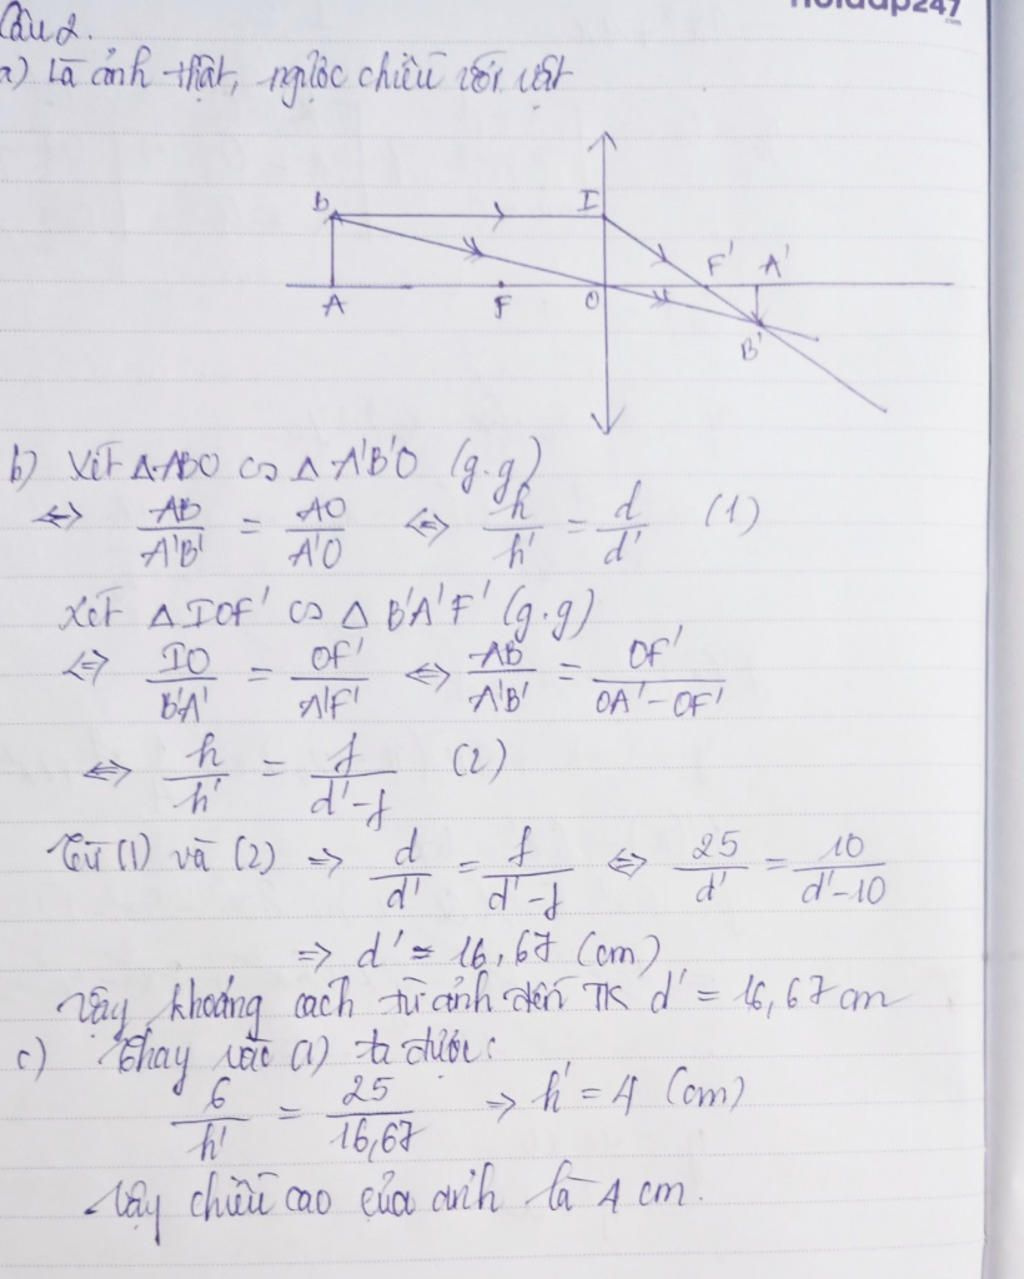 hoidap247
.com
Câu 2.
a) Là ảnh thật, ngược chiều với vật
B I F' A'
A F O B'
b) Xét △ABO ∽ △A'B'O (g.g)
⇔ AB/A'B' = AO/A'O ⇔ h/h' = d/d' (1)
Xét △IOF' ∽ △B'A'F' (g.g)
⇔ IO/B'A' = OF'/A'F' ⇔ AB/A'B' = OF'/OA'-OF'
⇔ h/h' = f/d'-f (2)
Từ (1) và (2) ⇒ d/d' = f/d'-f ⇔ 25/d' = 10/d'-10
⇒ d' ≈ 16,67 (cm)
Vậy khoảng cách từ ảnh đến TK d' = 16,67 cm
c) Thay vào (1) ta được:
6/h' = 25/16,67 ⇒ h' = 4 (cm)
Vậy chiều cao của ảnh là 4 cm.